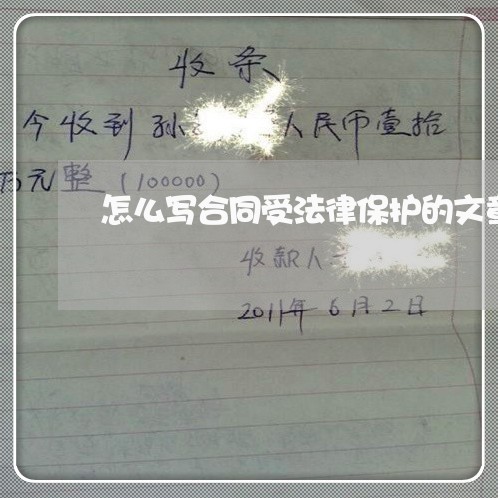 收条
今收到孙 人民币壹拾
万元整 (100000)
怎么写合同受法律保护的文章
收款人
2011年6月2日